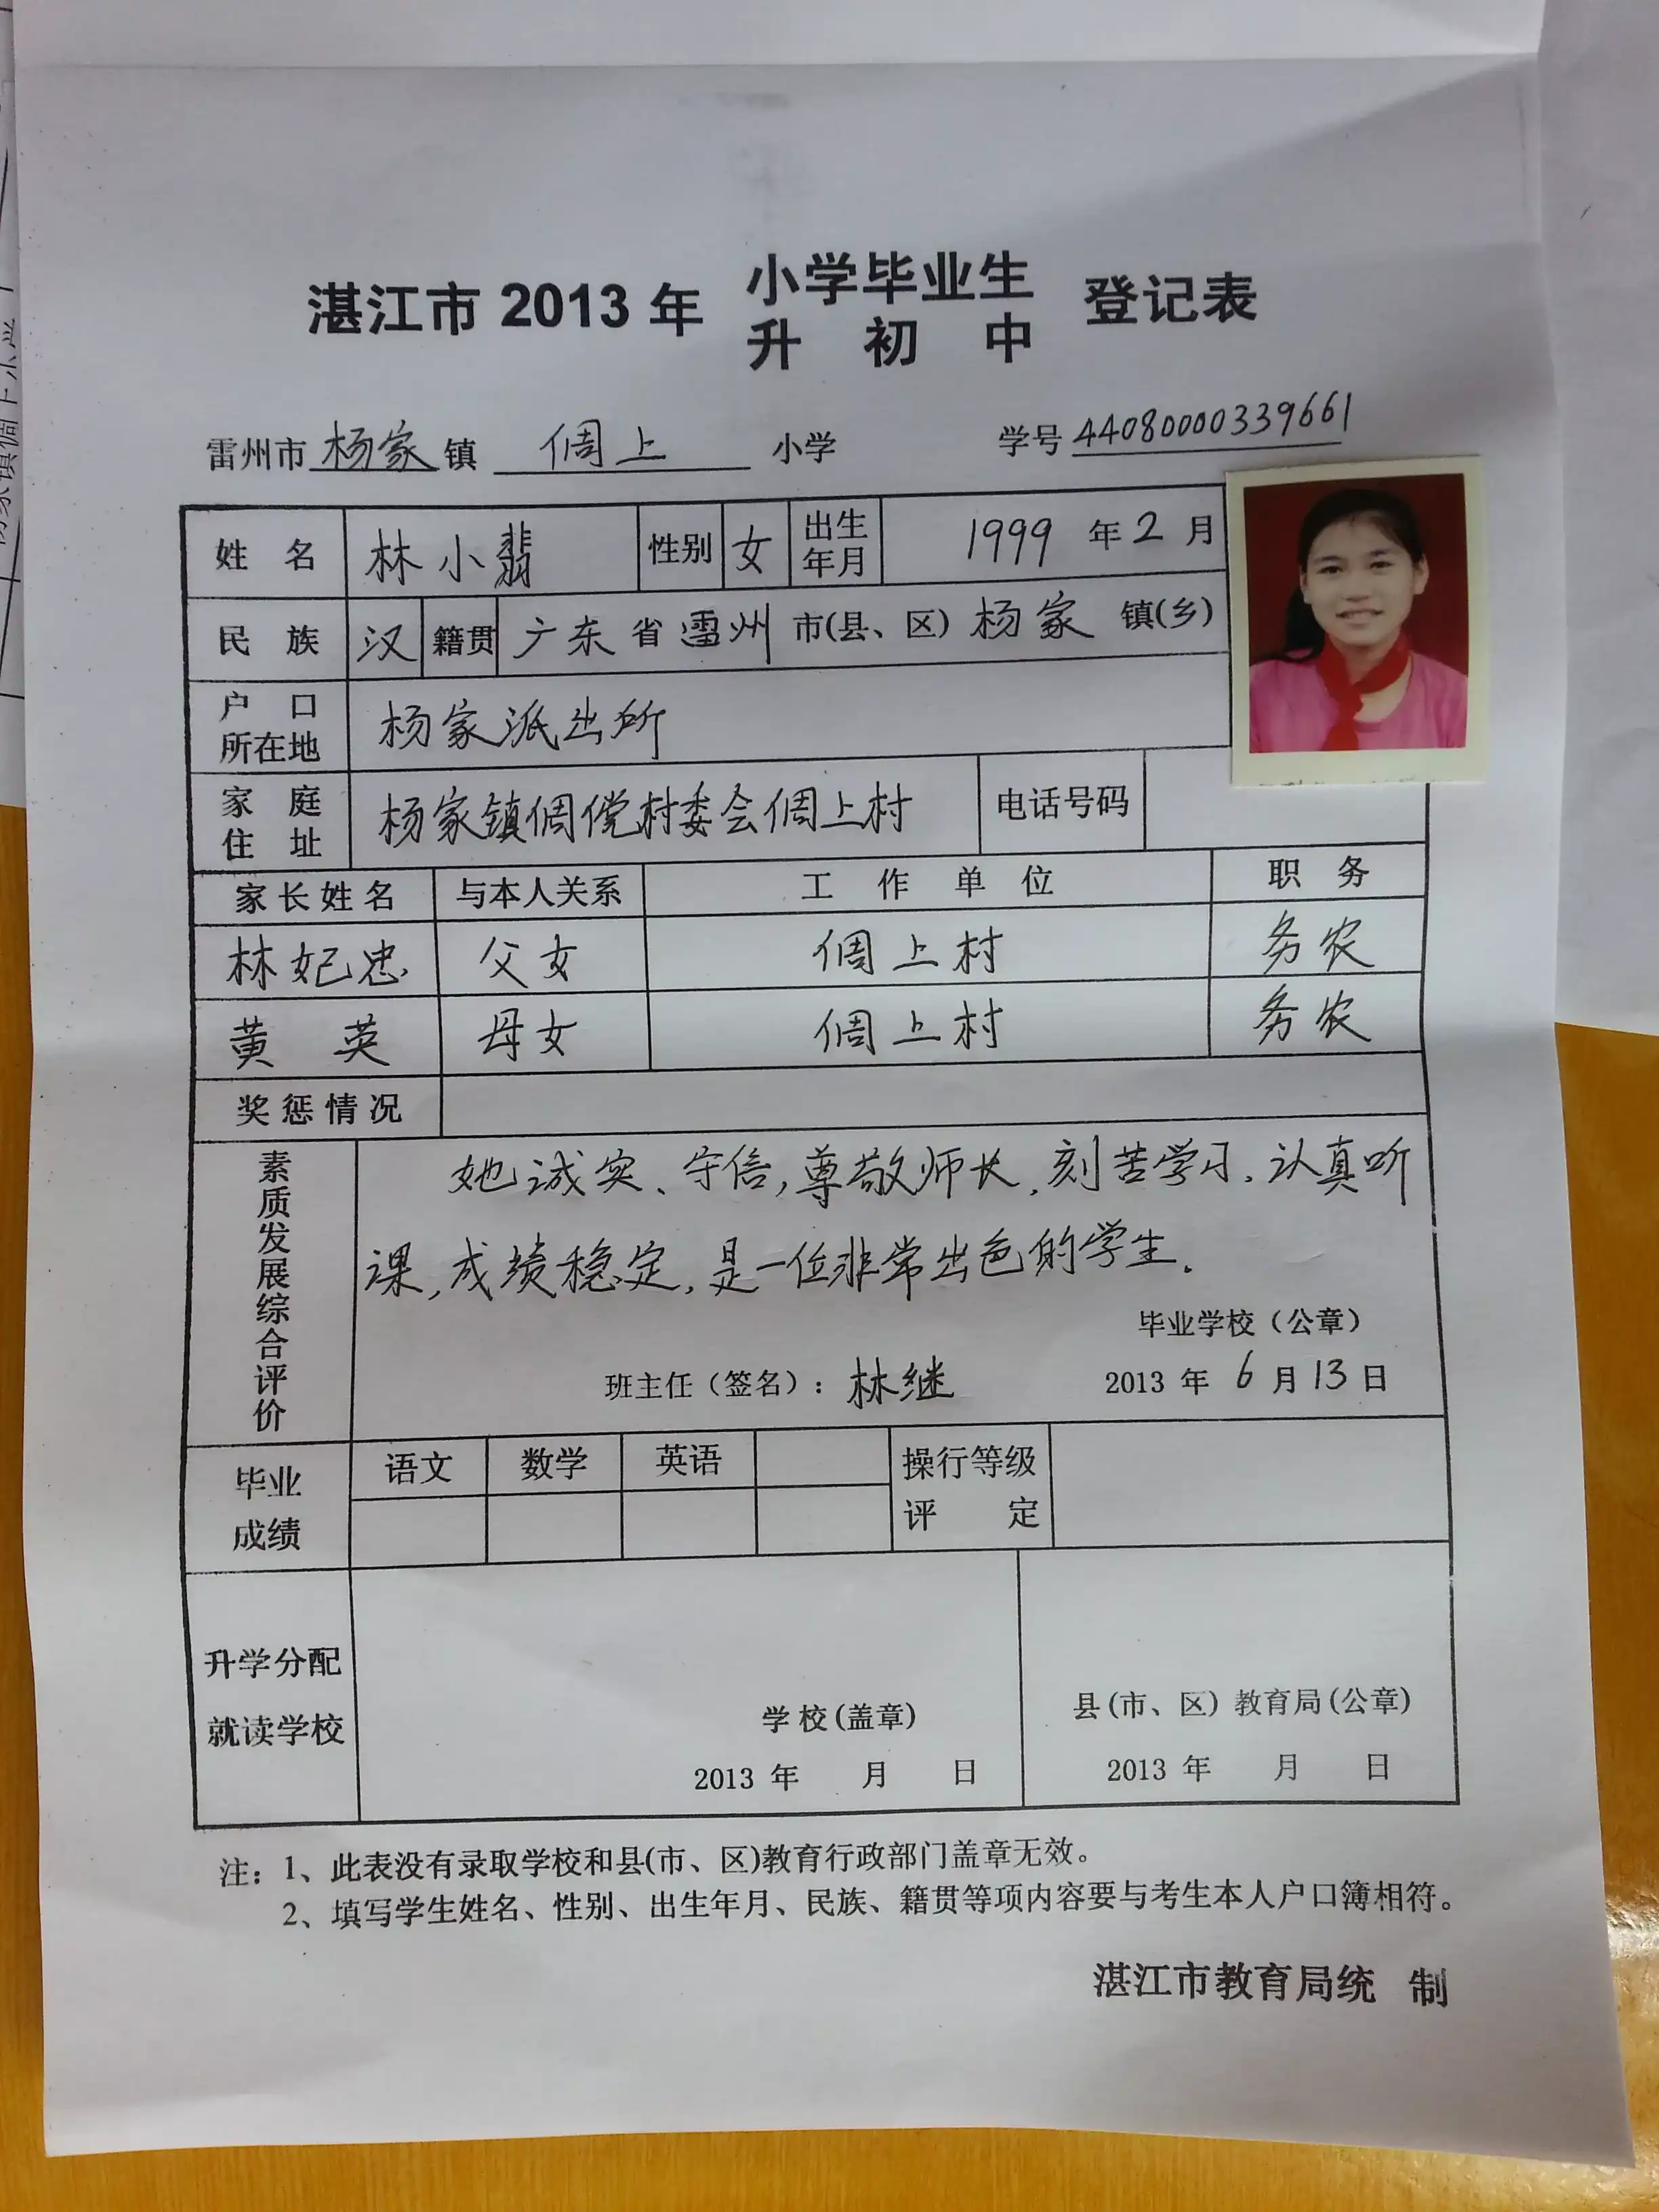 湛江市 2013 年 小学毕业生 登记表
升 初 中
雷州市 杨家 镇 倜上 小学 学号 44080000339661
姓 名 林小翡 性别 女 出生年月 1999 年 2 月
民 族 汉 籍贯 广东 省 雷州 市(县、区) 杨家 镇(乡)
户 口 所在地 杨家派出所
家 庭 住 址 杨家镇倜傥村委会倜上村 电话号码
家长姓名 与本人关系 工 作 单 位 职 务
林妃忠 父女 倜上村 务农
黄 英 母女 倜上村 务农
奖惩情况
素质发展综合评价
她诚实、守信,尊敬师长,刻苦学习,认真听
课,成绩稳定,是一位非常出色的学生.
毕业学校(公章)
班主任(签名): 林继 2013 年 6 月 13 日
毕业成绩 语文 数学 英语 操行等级评 定
升学分配
就读学校
学校(盖章) 县(市、区)教育局(公章)
2013 年 月 日 2013 年 月 日
注: 1、此表没有录取学校和县(市、区)教育行政部门盖章无效。
2、填写学生姓名、性别、出生年月、民族、籍贯等项内容要与考生本人户口簿相符。
湛江市教育局统 制